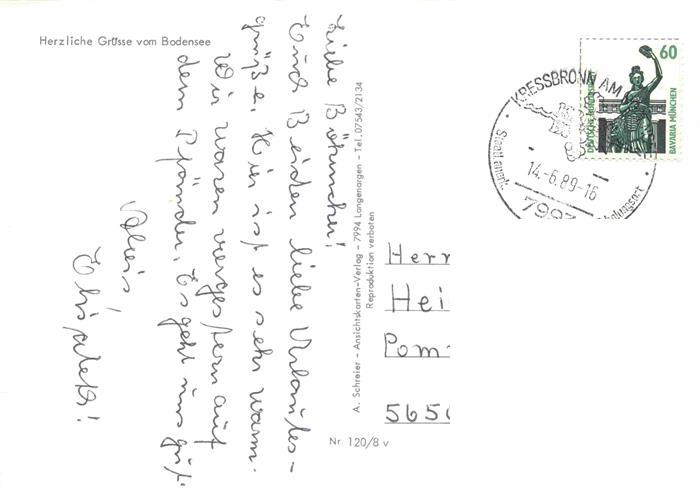 Herzliche Grüsse vom Bodensee
Liebe Bömmcher!
Euch Beiden liebe Urlaubs-
grüße. Hier ist es sehr warm.
Wir waren vorgestern auf
dem Pfänder. Es geht uns gut.
A. Schreier - Ansichtskarten-Verlag - 7994 Langenargen - Tel. 07543/2134
Reproduktion verboten
Nr. 120/8 v
Herr
Hei
Pom
5650
KRESSBRONN AM
14.-6.89-16
Staatl. aner
holungsort
799
60
DEUTSCHE BUNDESPOST
BAVARIA MÜNCHEN